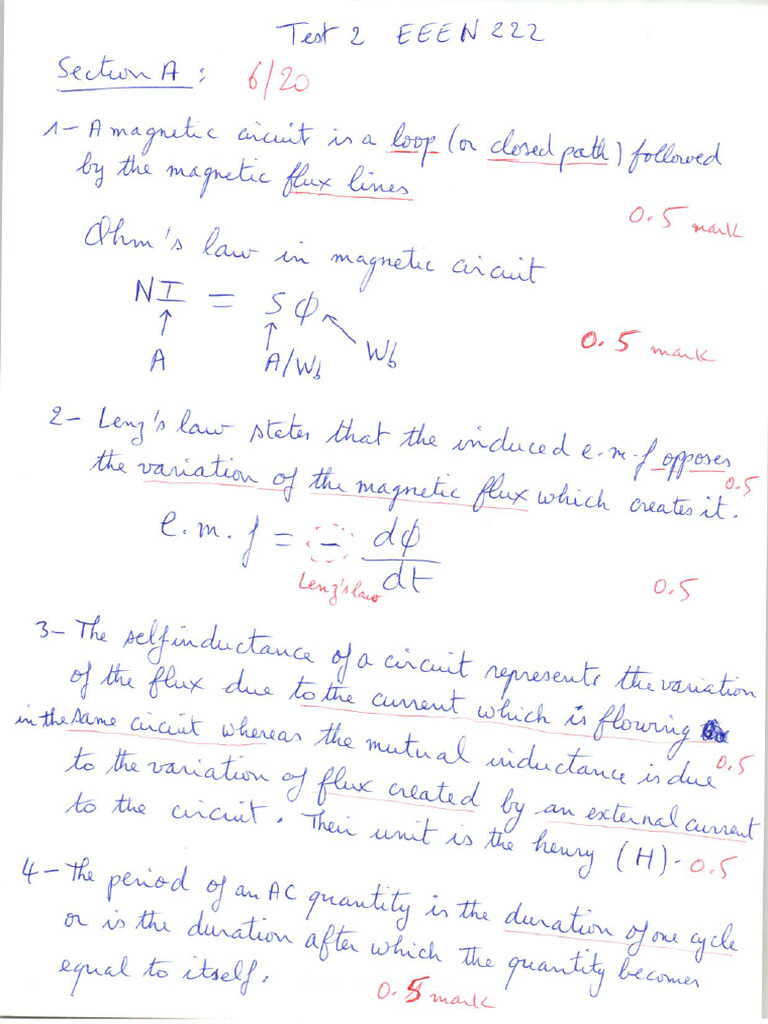 Test 2 EEEN 222
Section A : 6/20
1- A magnetic circuit is a loop (or closed path) followed
by the magnetic flux lines
0.5 mark
Ohm's law in magnetic circuit
NI = S ϕ
A A/Wb Wb
0.5 mark
2- Lenz's law states that the induced e.m.f opposes
the variation of the magnetic flux which creates it. 0.5
e.m.f = - dϕ/dt
Lenz's law 0.5
3- The selfinductance of a circuit represents the variation
of the flux due to the current which is flowing
in the same circuit whereas the mutual inductance is due 0.5
to the variation of flux created by an external current
to the circuit. Their unit is the henry (H). 0.5
4- The period of an AC quantity is the duration of one cycle
or is the duration after which the quantity becomes
equal to itself.
0.5 mark